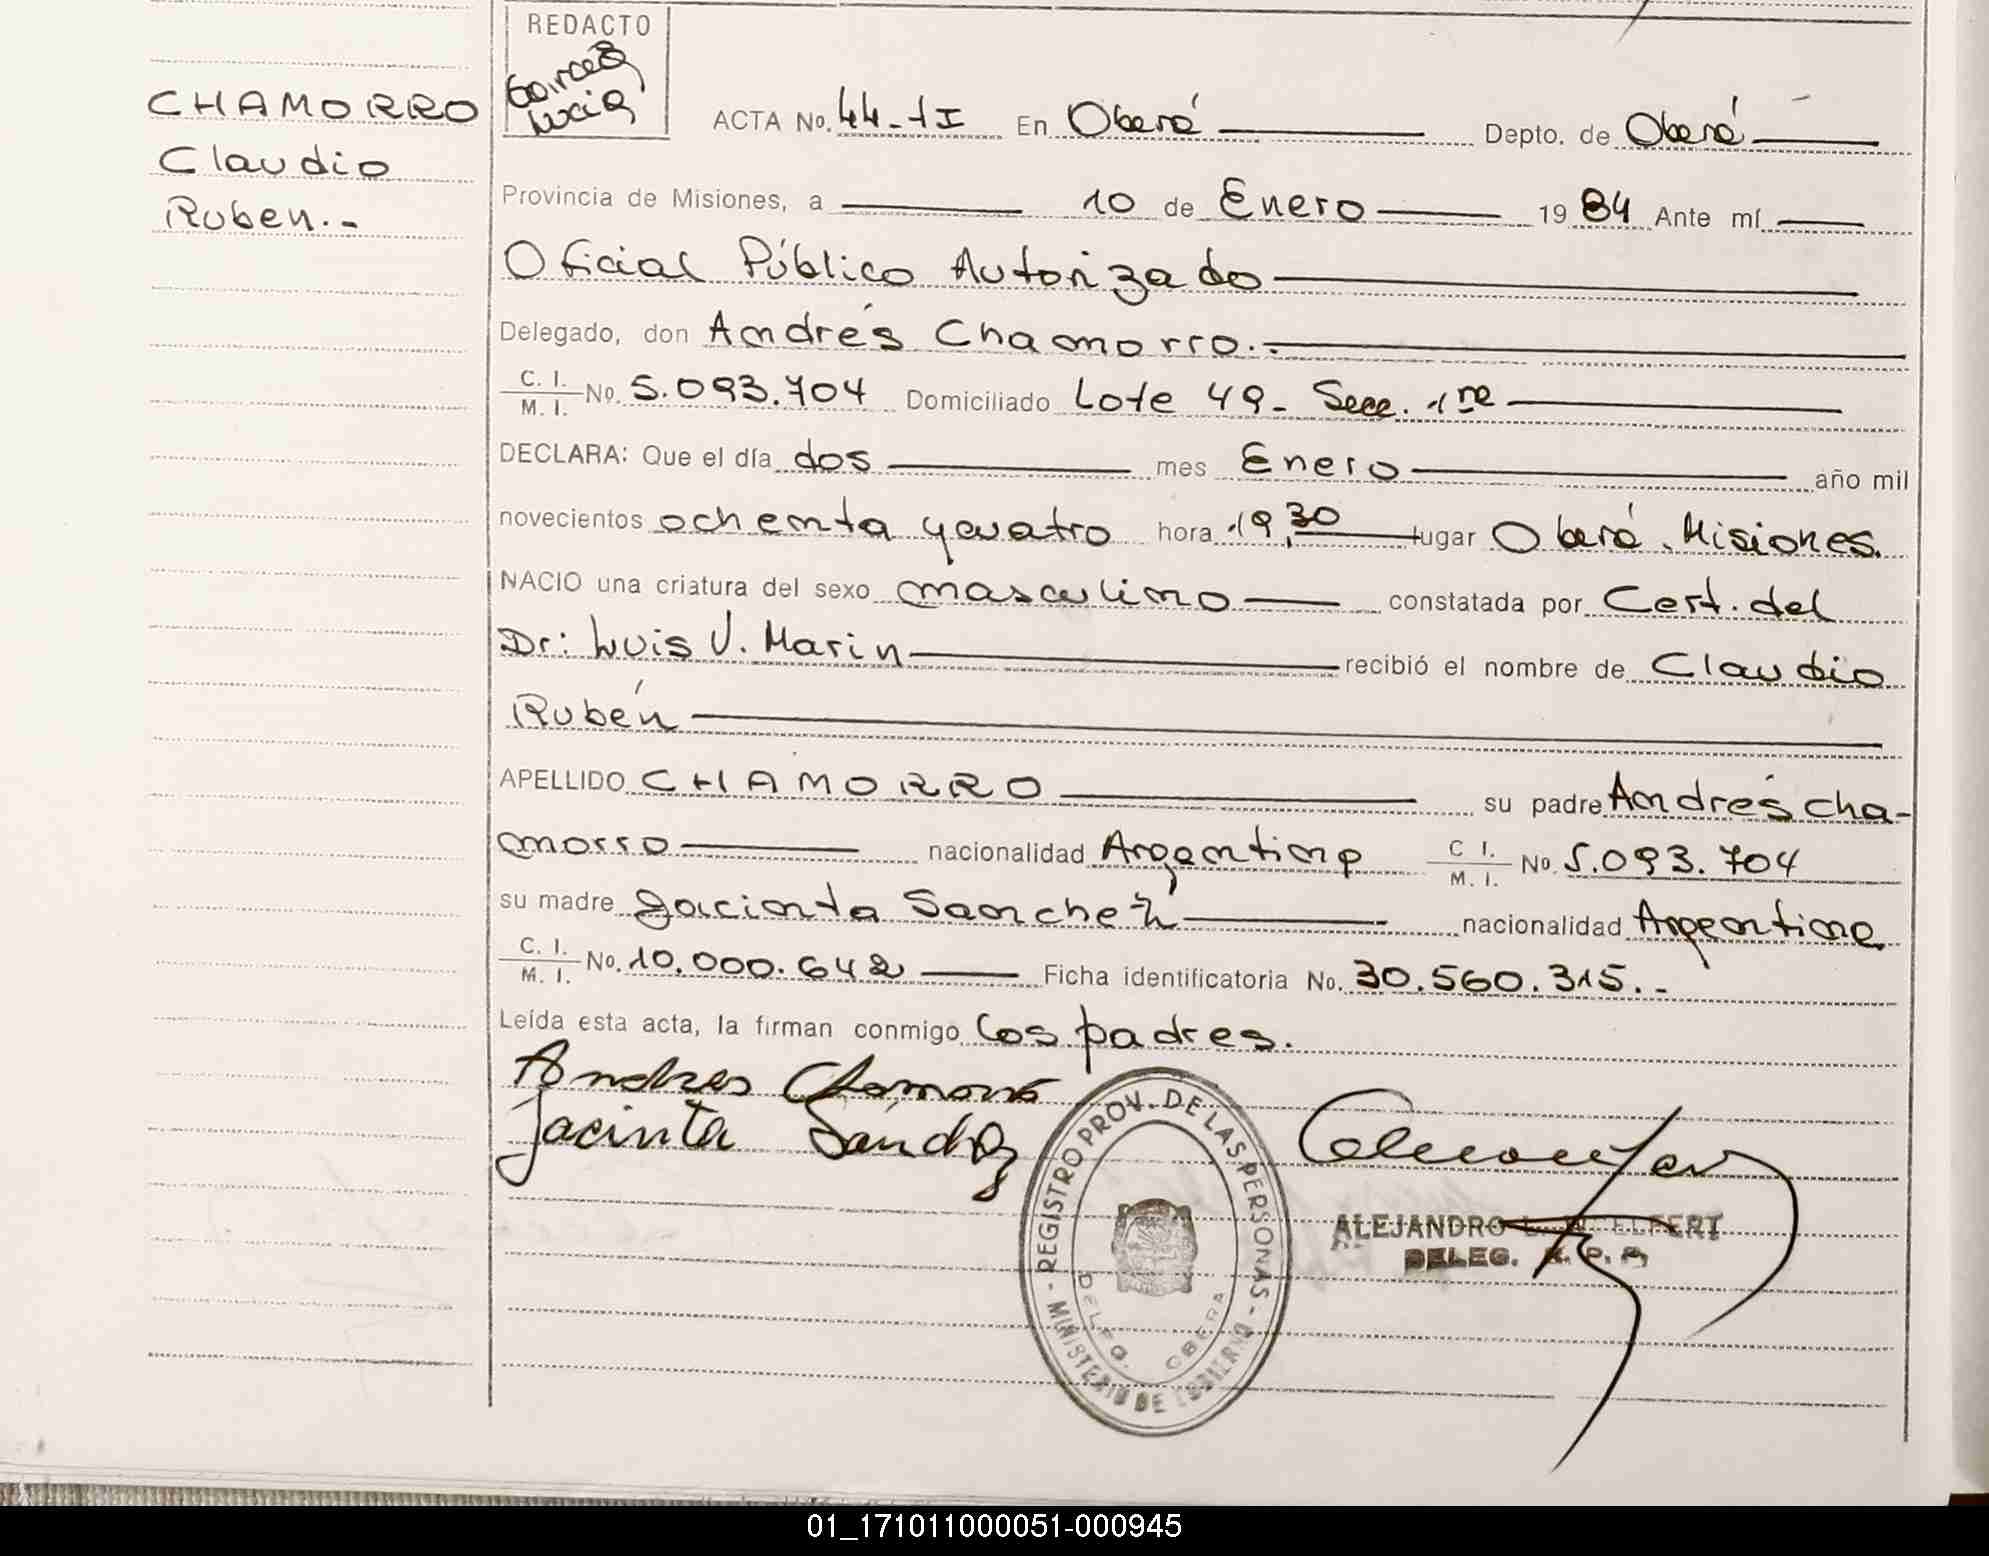 REDACTO
Garces
Lucia
CHAMORRO
Claudio
Ruben.-
ACTA No. 44-1I En Oberá Depto. de Oberá
Provincia de Misiones, a 10 de Enero 1984 Ante mí
Oficial Público Autorizado
Delegado, don Andrés Chamorro.-
C. I. / M. I. No. 5.093.704 Domiciliado Lote 49- Secc. 1ra
DECLARA: Que el día dos mes Enero año mil
novecientos ochenta y cuatro hora 19,30 lugar Oberá, Misiones.
NACIO una criatura del sexo masculino constatada por Cert. del
Dr: Luis V. Marin recibió el nombre de Claudio
Rubén
APELLIDO CHAMORRO su padre Andrés Cha-
morro nacionalidad Argentina C I. / M. I. No. 5.093.704
su madre Jacinta Sanchez nacionalidad Argentina
C. I. / M. I. No. 10.000.642 Ficha identificatoria No. 30.560.315.-
Leída esta acta, la firman conmigo los padres.
Andres Chamorro
Jacinta Sanchez
REGISTRO PROV. DE LAS PERSONAS - MINISTERIO DE GOBIERNO -
DELEG. OBERA
ALEJANDRO ELFERT
DELEG. R. P. P.
01_171011000051-000945